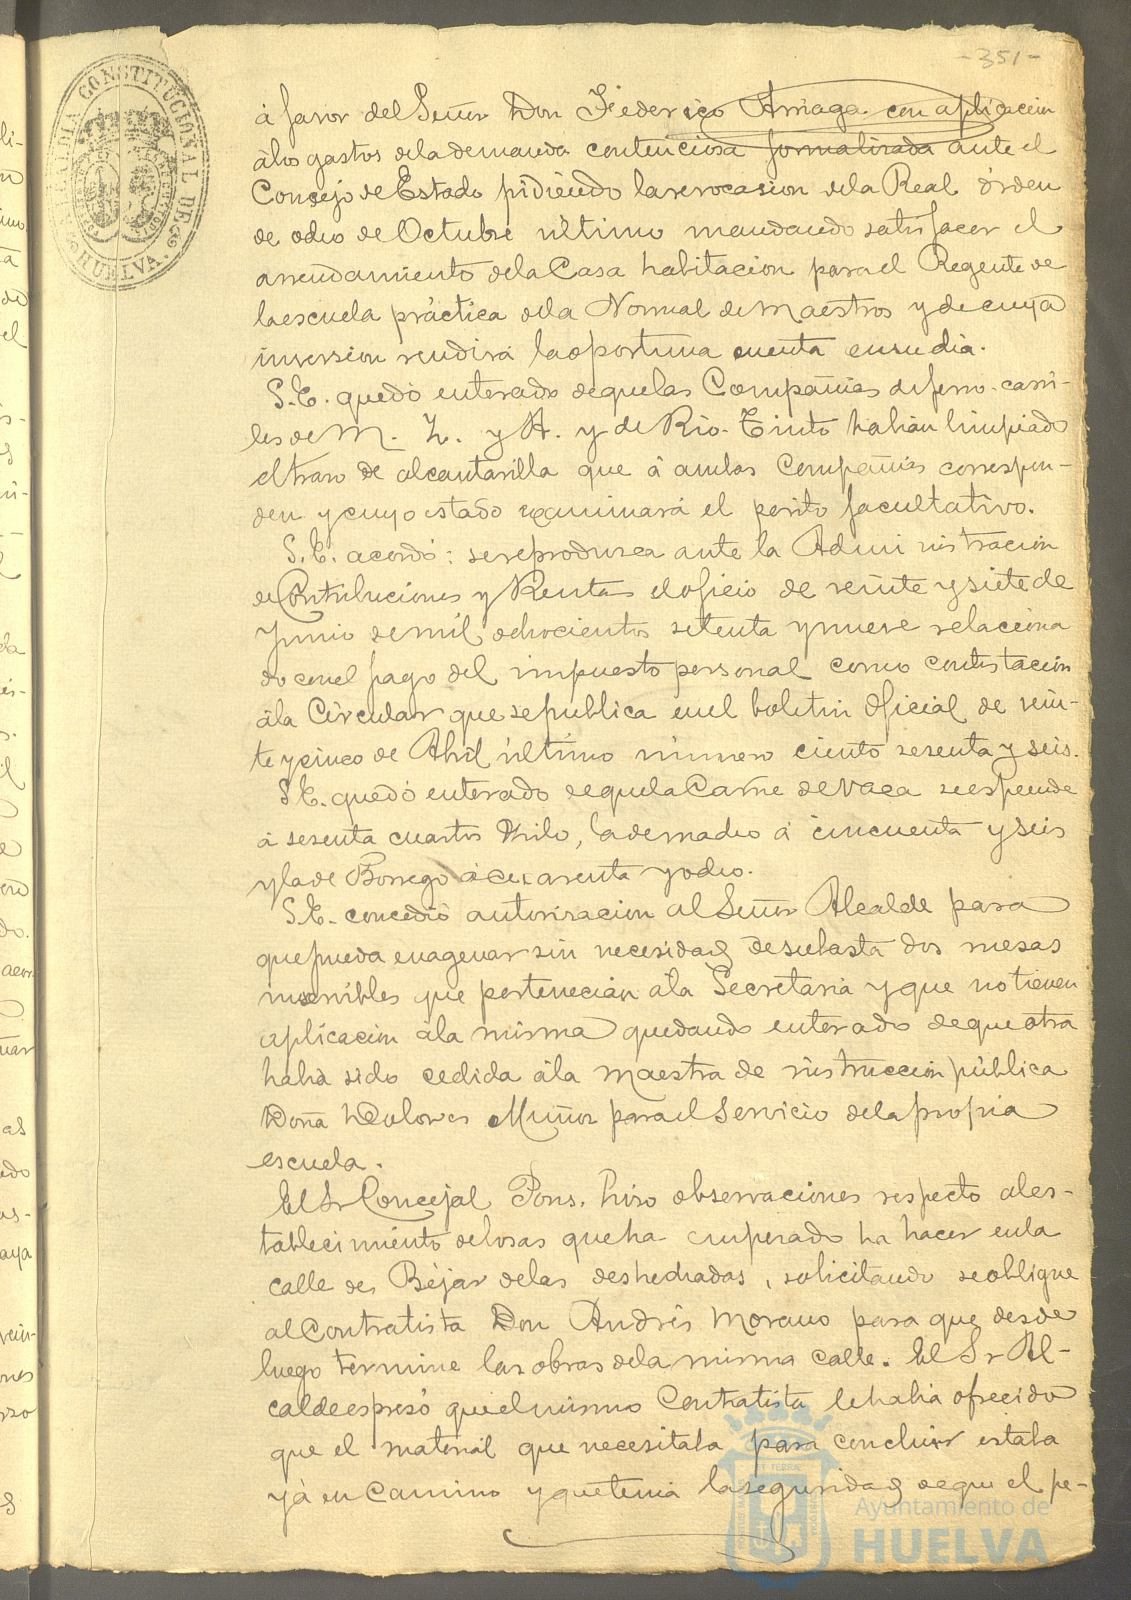 -351-
ALCALDIA CONSTITUCIONAL DE HUELVA.
á favor del Señor Don Federico Arriaga con aplicacion
álos gastos dela demanda contenciosa formalizada ante el
Consejo de Estado pidiendo larevocasion dela Real órden
de ocho de Octubre último mandando satisfacer el
arrendamiento dela Casa habitacion para el Regente de
laescuela práctica dela Normal de Maestros y de cuya
inversion rendirá la oportuna cuenta ensudia.
S.E. quedó enterado dequelas Compañias deferro-carri-
les de M. Z. y A. y de Rio-Tinto habian limpiado
eltrazo de alcantarilla que á ambas Compañias correspon-
den y cuyo estado examinará el perito facultativo.
S.E. acordó: sereproduzca ante la Administracion
de Contribuciones y Rentas eloficio de veinte y siete de
Junio demil ochocientos setenta y nueve relaciona
do conel pago del impuesto personal como contestacion
ála Circular que sepublica enel boletin Oficial de vein-
te y cinco de Abril último número ciento sesenta y seis.
S.E. quedó enterado dequela Carne de Vaca seespende
á sesenta cuartos Kilo, lade macho á cincuenta y seis
y la de Borrego á cuarenta y ocho.
S.E. concedió autorizacion al Señor Alcalde para
que pueda enagenar sin necesidad desubasta dos mesas
inservibles que pertenecian ála Secretaria y que no tienen
aplicacion ála misma quedando enterado deque otra
habia sido cedida ála maestra de instruccion pública
Doña Dolores Muñoz para el Servicio dela propia
escuela.
El Sr Concejal Pons, hizo observaciones respecto al es-
tablecimiento delosas que ha empezado ha hacer enla
calle de Béjar delas deshechadas, solicitando seobligue
al Contratista Don Andrés Morano para que desde
luego termine las obras dela misma calle. El Sr Al-
calde espresó queelmismo Contratista lehabia ofrecido
que el material que necesitaba para concluir estaba
yá en Camino y que tenia laseguridad deque el pe-
Ayuntamiento de
HUELVA